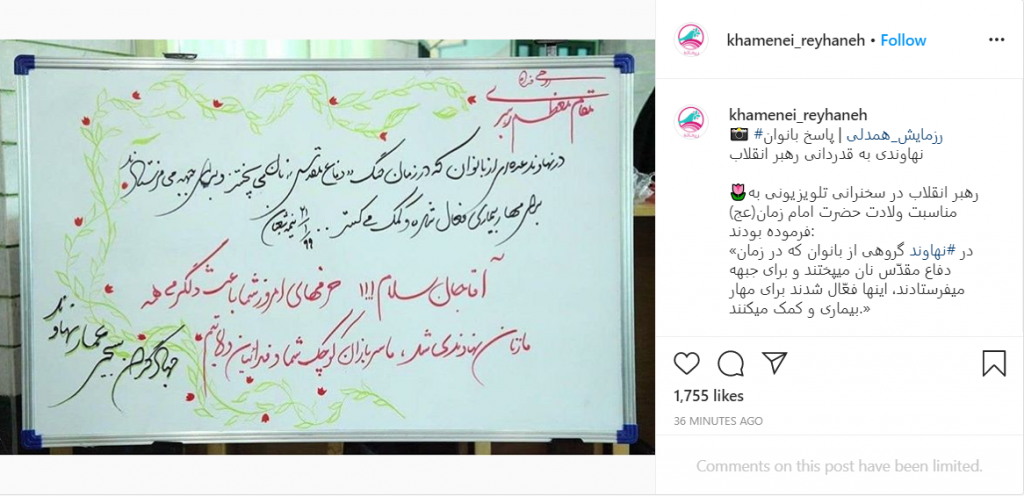 روحی فداه
مقام معظم رهبری
در نهاوند عده‌ای از بانوان که در زمان جنگ و دفاع مقدس، نان می‌پختند و برای جبهه می‌فرستادند
برای مهار بیماری فعال شده و کمک می‌کنند...
۹۹/۱/۲۱ نیمه شعبان
آقاجان سلام!!! حرفهای امروز شما باعث دلگرمی همه
ما زنان نهاوندی شد، ما سربازان کوچک شما و فداییان ولایتیم
جهادگران بسیجی عمار نهاوند
khamenei_reyhaneh • Follow
khamenei_reyhaneh
📷 #رزمایش_همدلی | پاسخ بانوان
نهاوندی به قدردانی رهبر انقلاب
🌷رهبر انقلاب در سخنرانی تلویزیونی به
مناسبت ولادت حضرت امام زمان(عج)
فرموده بودند:
«در #نهاوند گروهی از بانوان که در زمان
دفاع مقدّس نان میپختند و برای جبهه
میفرستادند، اینها فعّال شدند برای مهار
بیماری و کمک میکنند.»
1,755 likes
36 MINUTES AGO
Comments on this post have been limited.